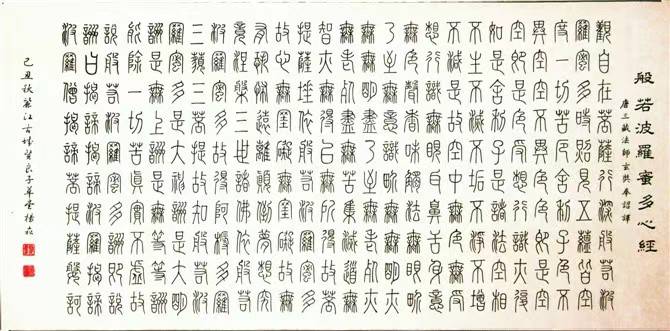 般若波羅蜜多心經
唐三藏法師玄奘奉詔譯
觀自在菩薩行深般若波
羅蜜多時照見五蘊皆空
度一切苦厄舍利子色不
異空空不異色色即是空
空即是色受想行識亦復
如是舍利子是諸法空相
不生不滅不垢不淨不增
不減是故空中無色無受
想行識無眼耳鼻舌身意
無色聲香味觸法無眼界
乃至無意識界無無明亦
無無明盡乃至無老死亦
無老死盡無苦集滅道無
智亦無得以無所得故菩
提薩埵依般若波羅蜜多
故心無罣礙無罣礙故無
有恐怖遠離顛倒夢想究
竟涅槃三世諸佛依般若
波羅蜜多故得阿耨多羅
三藐三菩提故知般若波
羅蜜多是大神咒是大明
咒是無上咒是無等等咒
能除一切苦真實不虛故
說般若波羅蜜多咒即說
咒曰揭諦揭諦波羅揭諦
波羅僧揭諦菩提薩婆訶
己丑秋江古城良子草堂楊